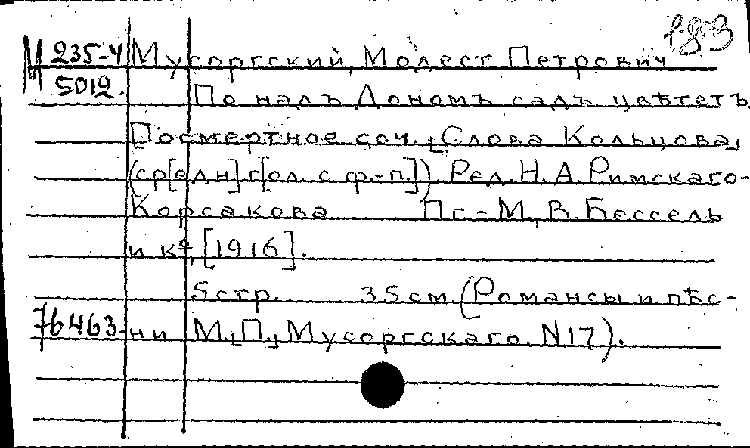 183
М 235-4 Мусоргский, Модест Петрович
5012. По надъ Дономъ садъ цвѣтетъ
Посмертное соч. [Слова Кольцова]
(ср[едн] г[ол. с ф.-п.]) Ред. Н. А. Римскаго-
Корсакова Пг.-М., В. Бессель
и К°, [1916].
5 стр. 35 см. (Романсы и пѣс-
76463 ни М.[П.] Мусоргскаго. N 17).